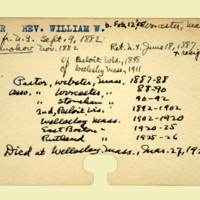 R REV. WILLIAM W. b. Feb, 12, Worcester, Mass
Sept. 9, 1882
Nov. 1882 Ret. N.Y. June 18, 1887
of Beloit Wis., 1898
of Wellesley Mass, 1911
Pastor, Webster, Mass. 1887-88
asso. " Worcester, " 88-90
" Stoneham " 90-92
" 2nd, Beloit, Wis. " 1892-1902
Wellesley Mass. 1902-1920
East Boston " 1920-25
Rutland " 1925-26
Died at Wellesley, Mass., Mar. 27, 19